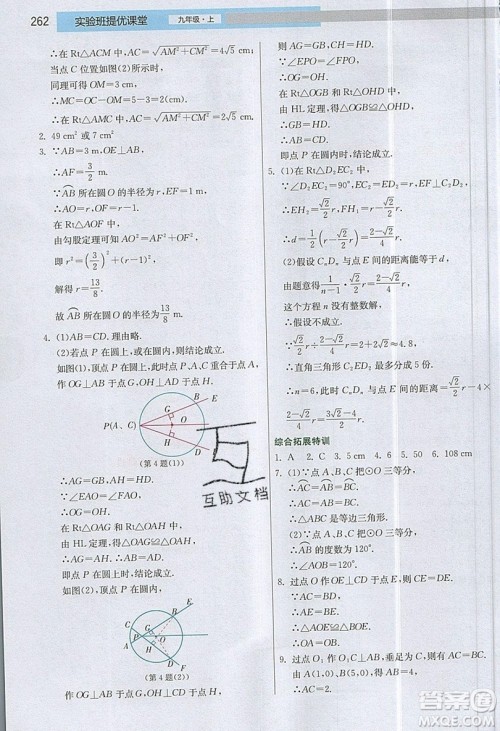 262 实验班提优课堂 九年级·上
∴在 Rt△ACM 中,AC=√(AM²+CM²)=4√5 cm;
当点 C 位置如图(2)所示时,
同理可得 OM=3 cm,
∴MC=OC-OM=5-3=2(cm),
∴在 Rt△AMC 中,AC=√(AM²+CM²)=2√5 cm.
2. 49 cm² 或 7 cm²
3. ∵AB=3 m,OE⊥AB,
∴AF=3/2 m.
∵AB 所在圆 O 的半径为 r,EF=1 m,
∴AO=r,OF=r-1.
由勾股定理可知 AO²=AF²+OF²,
即 r²=(3/2)²+(r-1)²,
解得 r=13/8.
故 AB 所在圆 O 的半径为 13/8 m.
4. (1)AB=CD. 理由略.
(2)若点 P 在圆上,即点 P、A、C 重合于点 P.
如图(1),作 OG⊥AB 于点 G,OH⊥CD 于点 H,
P(A、C) G O H B E D F
(第 4 题(1))
∴AG=GB,CH=HD.
∵∠EPO=∠FPO,
∴OG=OH.
在 Rt△OAG 和 Rt△OAH 中,
由 HL 定理,得△OAG≌△OAH.
∴AG=AH.
∴AB=CD.
即点 P 在圆上时,结论成立.
如图(2),若点 P 在圆内,
C A P G O H B E D F
(第 4 题(2))
作 OG⊥AB 于点 G,OH⊥CD 于点 H,
则点 G、H 分别是 AB、CD 的中点.
∴AG=GB,CH=HD.
∵∠EPO=∠FPO,
∴OG=OH.
在 Rt△OGB 和 Rt△OHD 中,
由 HL 定理,得△OGB≌△OHD.
∴GB=HD.
∴AB=CD.
即点 P 在圆内时,结论成立.
5. (1)在 Rt△D₂EC₂ 中,
∵∠D₂EC₂=90°,EC₂=ED₂=r,EF⊥C₂D₂,
∴EH₂=√2/2 r,FH₂=r-√2/2 r.
∴d=1/2(r-√2/2 r)=(2-√2)/4 r.
(2)假设 CₙDₙ 与点 E 间的距离能等于 √2/2 r,
由题意得 1/(n-1)·(2-√2)/2 r=√2/2 r,
这个方程 n 没有整数解,
∴假设不成立.
∵√2/2 r÷(2-√2)/2 r≈2.4,2+2.4=4.8,
∴直角三角形 C₂ED₂ 最多分成 5 份.
∴n=6,此时 CₙDₙ 与点 E 间的距离=√2/2 r-4×
(2-√2)/4 r=(3√2-4)/2 r.
综合拓展特训
1. A 2. C 3. 5 cm 4. 5 5. 6 6. 108 cm
7. ∵点 A、B、C 把⊙O 三等分,
∴AB=BC=CA.
∴AB=BC=AC.
∴△ABC 是等边三角形.
∵点 A、B、C 把⊙O 三等分,
∴AB 的度数为 120°.
∴∠AOB=120°.
8. 过点 O 作 OE⊥CD 于点 E,则 CE=DE.
∵AC=BD,
∴AE=BE.
∴OA=OB.
9. 过点 O₁ 作 O₁C⊥AB,垂足为点 C,则有 AC=BC.
由 A(1,0)、B(5,0),得 AB=4,
∴AC=BC=2.
互助文档
答案圈
MXQE.COM